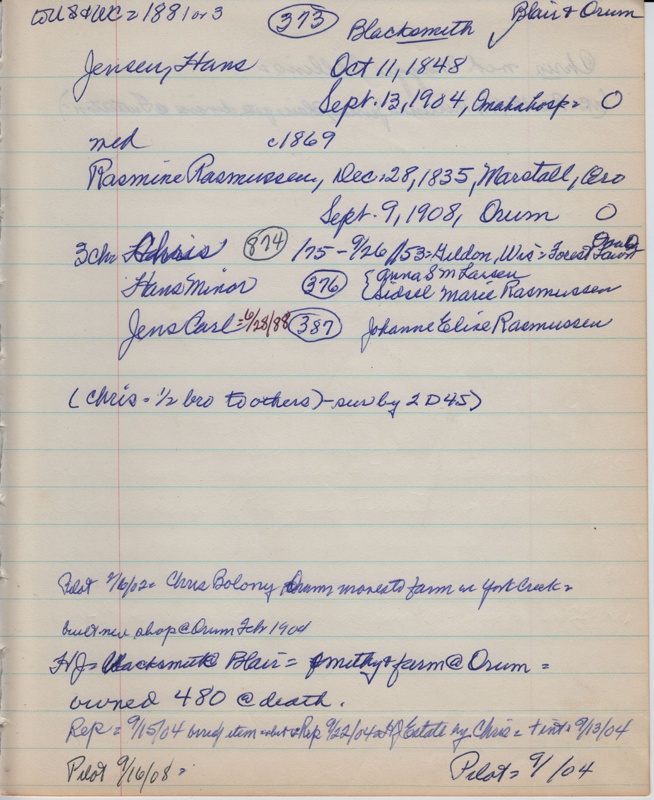 to US & WC = 1881 or 3
373
Blacksmith
Blair & Orum
Jensen, Hans Oct 11, 1848
Sept. 13, 1904, Omaha hosp = O
med c1869
Rasmine Rasmussen, Dec. 28, 1835, Marstall, Æro
Sept. 9, 1908, Orum O
3 ch = Chris 874 /75 - 9/26/53 = Weldon, Wis = Forest Lawn Omaha
Hans Minor 376 { Anna S M Larsen
Sidsel Marie Rasmussen
Jens Carl = 6/28/88 387 Johanne Elise Rasmussen
(Chris = 1/2 bro to others) - sur by 2 D 4 S)
Pilot 2/6/02 = Chris Orum moves to farm on York Creek =
built new shop @ Orum Feb 1904
HJ = blacksmith @ Blair = smithy & farm @ Orum =
owned 480 @ death.
Rep = 9/15/04 item Rep 9/22/04 = HJ Estate by Chris = + int = 9/13/04
Pilot 9/16/08 = Pilot = 9/ /04